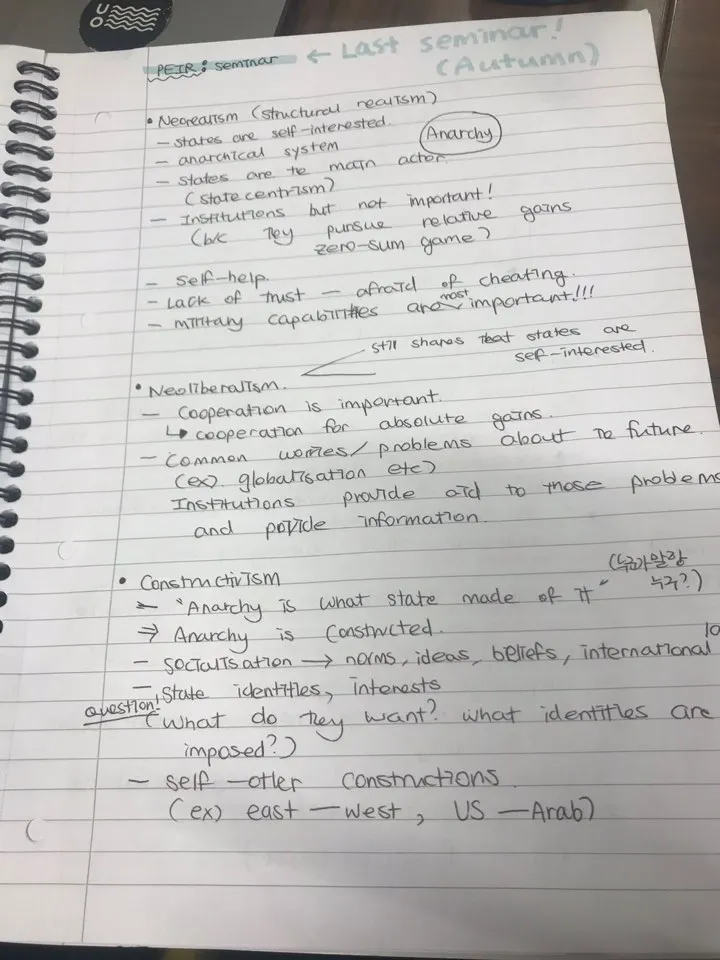 PEIR: seminar ← Last seminar!
(Autumn)
• Neorealism (structural realism)
– states are self-interested.
– anarchical system
Anarchy
– states are te main actor.
(state centrism)
– Institutions but not important!
(b/c They pursue relative gains
zero-sum game)
– Self-help.
– Lack of trust – afraid of cheating.
– military capabilities are most important!!!
still shares that states are
self-interested.
• Neoliberalism.
– Cooperation is important.
↳ cooperation for absolute gains.
– Common worries/problems about the future.
(ex) globalisation etc)
Institutions provide aid to those problems
and provide information.
• Constructivism
– "Anarchy is what state made of it"
⇒ Anarchy is Constructed.
– socialisation → norms, ideas, beliefs, international
– state identities, interests
question!
(What do they want? what identities are
imposed?)
– self – other constructions
(ex) east – west, US – Arab)